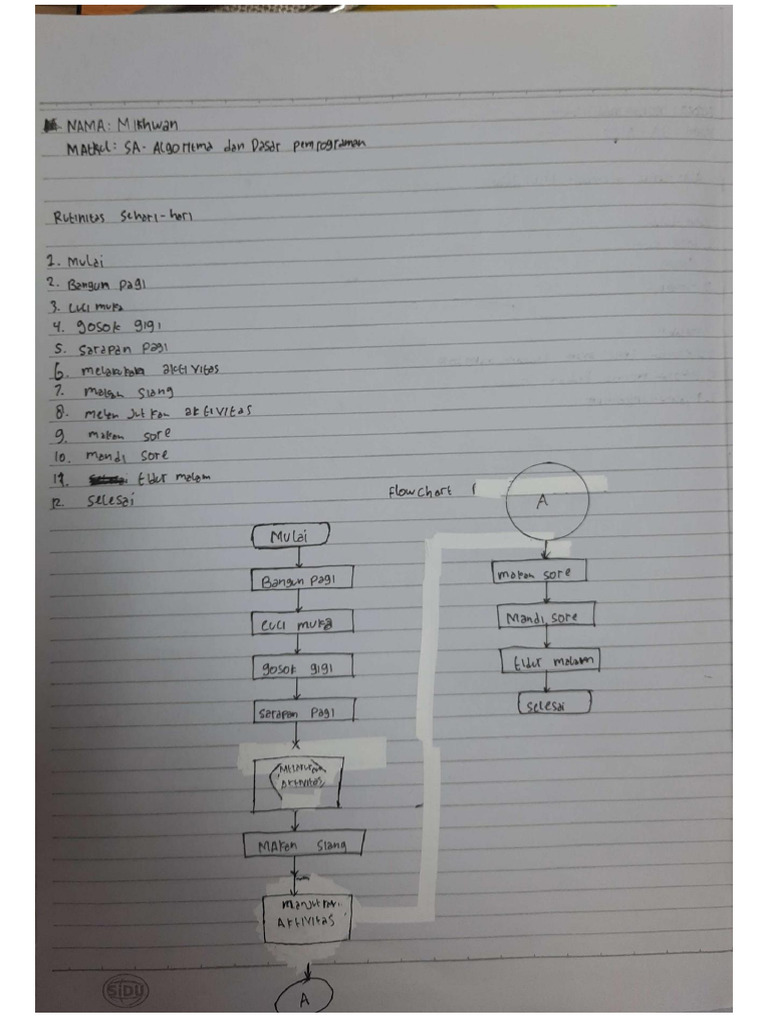 NAMA: Mikhwan
Matkul: SA- Algoritma dan Dasar pemrograman
Rutinitas Sehari-hari
1. Mulai
2. Bangun pagi
3. cuci muka
4. gosok gigi
5. sarapan pagi
6. melakukan aktivitas
7. makan siang
8. melanjutkan aktivitas
9. makan sore
10. mandi sore
11. tidur malam
12. selesai
Flowchart
Mulai
Bangun pagi
cuci muka
gosok gigi
sarapan pagi
Melakukan
Aktivitas
MAkan siang
Aktivitas
A
A
makan sore
Mandi sore
tidur malam
selesai
SIDU